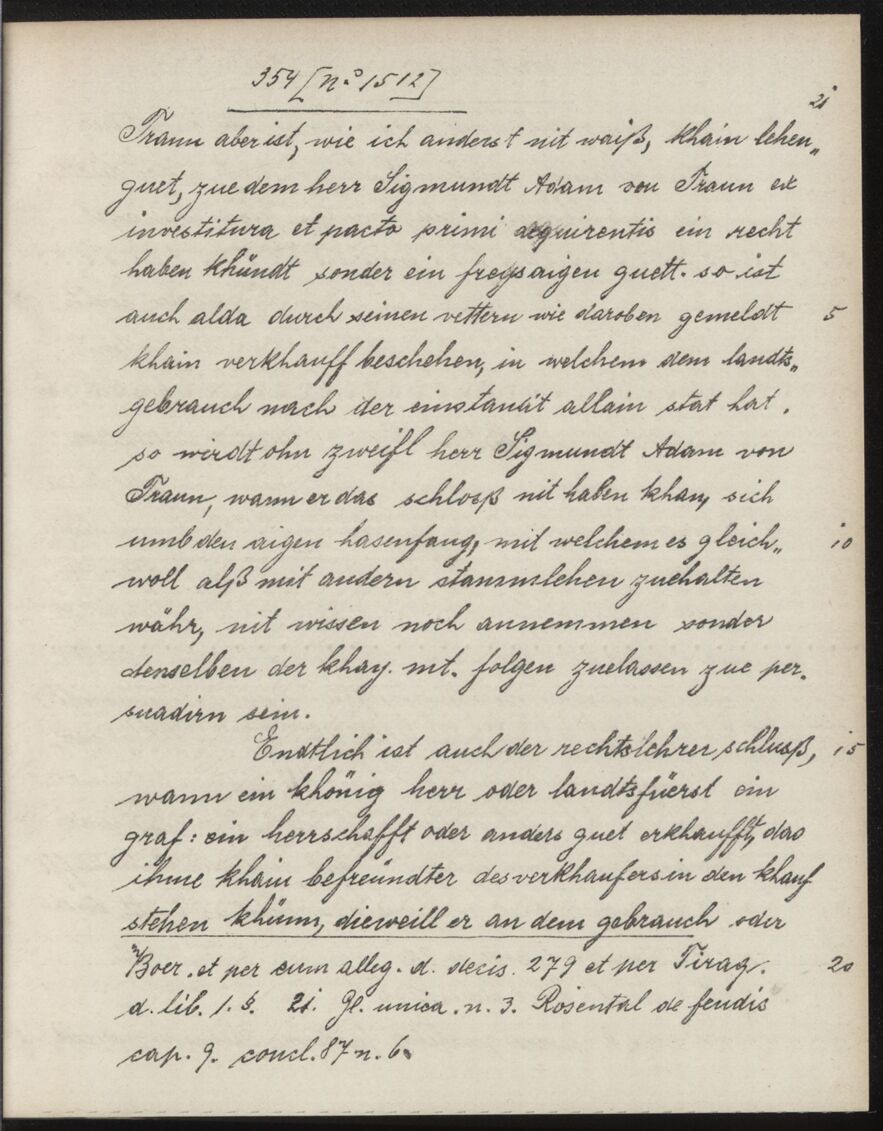 354 [No 1512]
21
Traun aber ist, wie ich anderst nit waiß, khain lehen„
guet, zue dem herr Sigmundt Adam von Traun ex
investitura et pacto primi acquirentis ein recht
haben khündt sonder ein freysaigen guett. so ist
auch alda durch seinen vettern wie daroben gemeldt 5
khain verkhauff beschehen, in welchem dem landts„
gebrauch nach der einstandt allain stat hat.
so wirdt ohn zweifl herr Sigmundt Adam von
Traun, wann er das schloß nit haben khan, sich
umb den aigen hasenfang, mit welchem es gleich„ 10
woll alß mit andern stammslehen zuehalten
währ, nit wissen noch annemmen sonder
denselben der khay. mt. folgen zuelassen zue per„
suadirn sein.
Endtlich ist auch der rechtslehrer schluß, 15
wann ein khönig herr oder landtsfüerst ein
graf: ein herrschafft oder anders guet erkhaufft, das
ihme khain befreündter des verkhaufers in den khauf
stehen khünn, dieweill er an dem gebrauch oder
m) Boer. et per eum alleg. d. decis. 279 et per Tiraq. 20
d. lib. 1. §. 21. Gl. unica. n. 3. Rosental de feudis
cap. 9. concl. 87 n. 6.